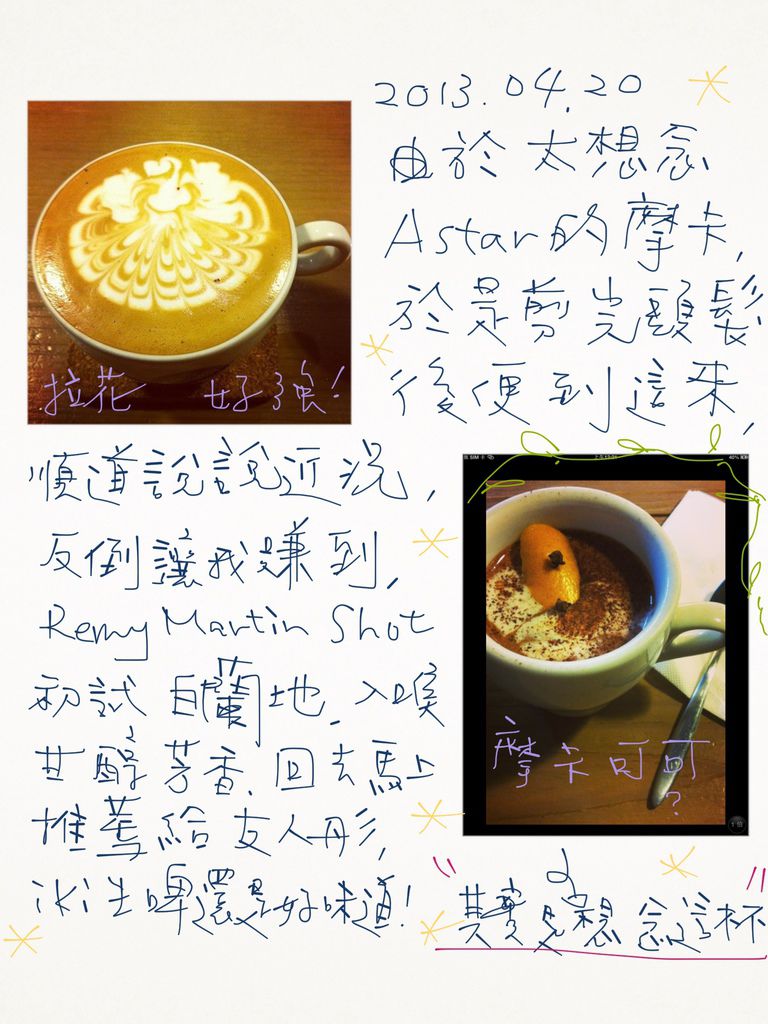 2013.04.20
由於太想念
Astar的摩卡,
於是剪完頭髮
後便到這來,
拉花 好強!
順道說說近況,
反倒讓我賺到,
Remy Martin Shot
初試白蘭地.入喉
甘醇芳香.回去馬上
推薦給友人彤,
冰生啤還是好味道!
摩卡可可
?
"其實是想念這杯"